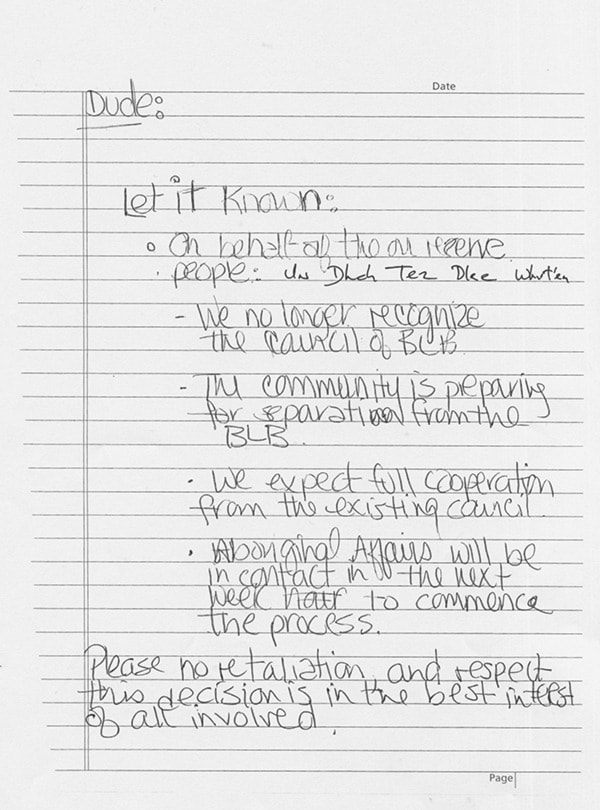 Date
Dude:
Let it Known:
On behalf of the on reserve
people: Un Dhch Tez Dlee
- We no longer recognize
the Council of BLB
- The community is preparing
for separation from the
BLB.
· We expect full cooperation
from the existing council
· Aboriginal Affairs will be
in contact in the next
week half to commence
the process.
Please no retaliation and respect
this decision is in the best interest
of all involved.
Page